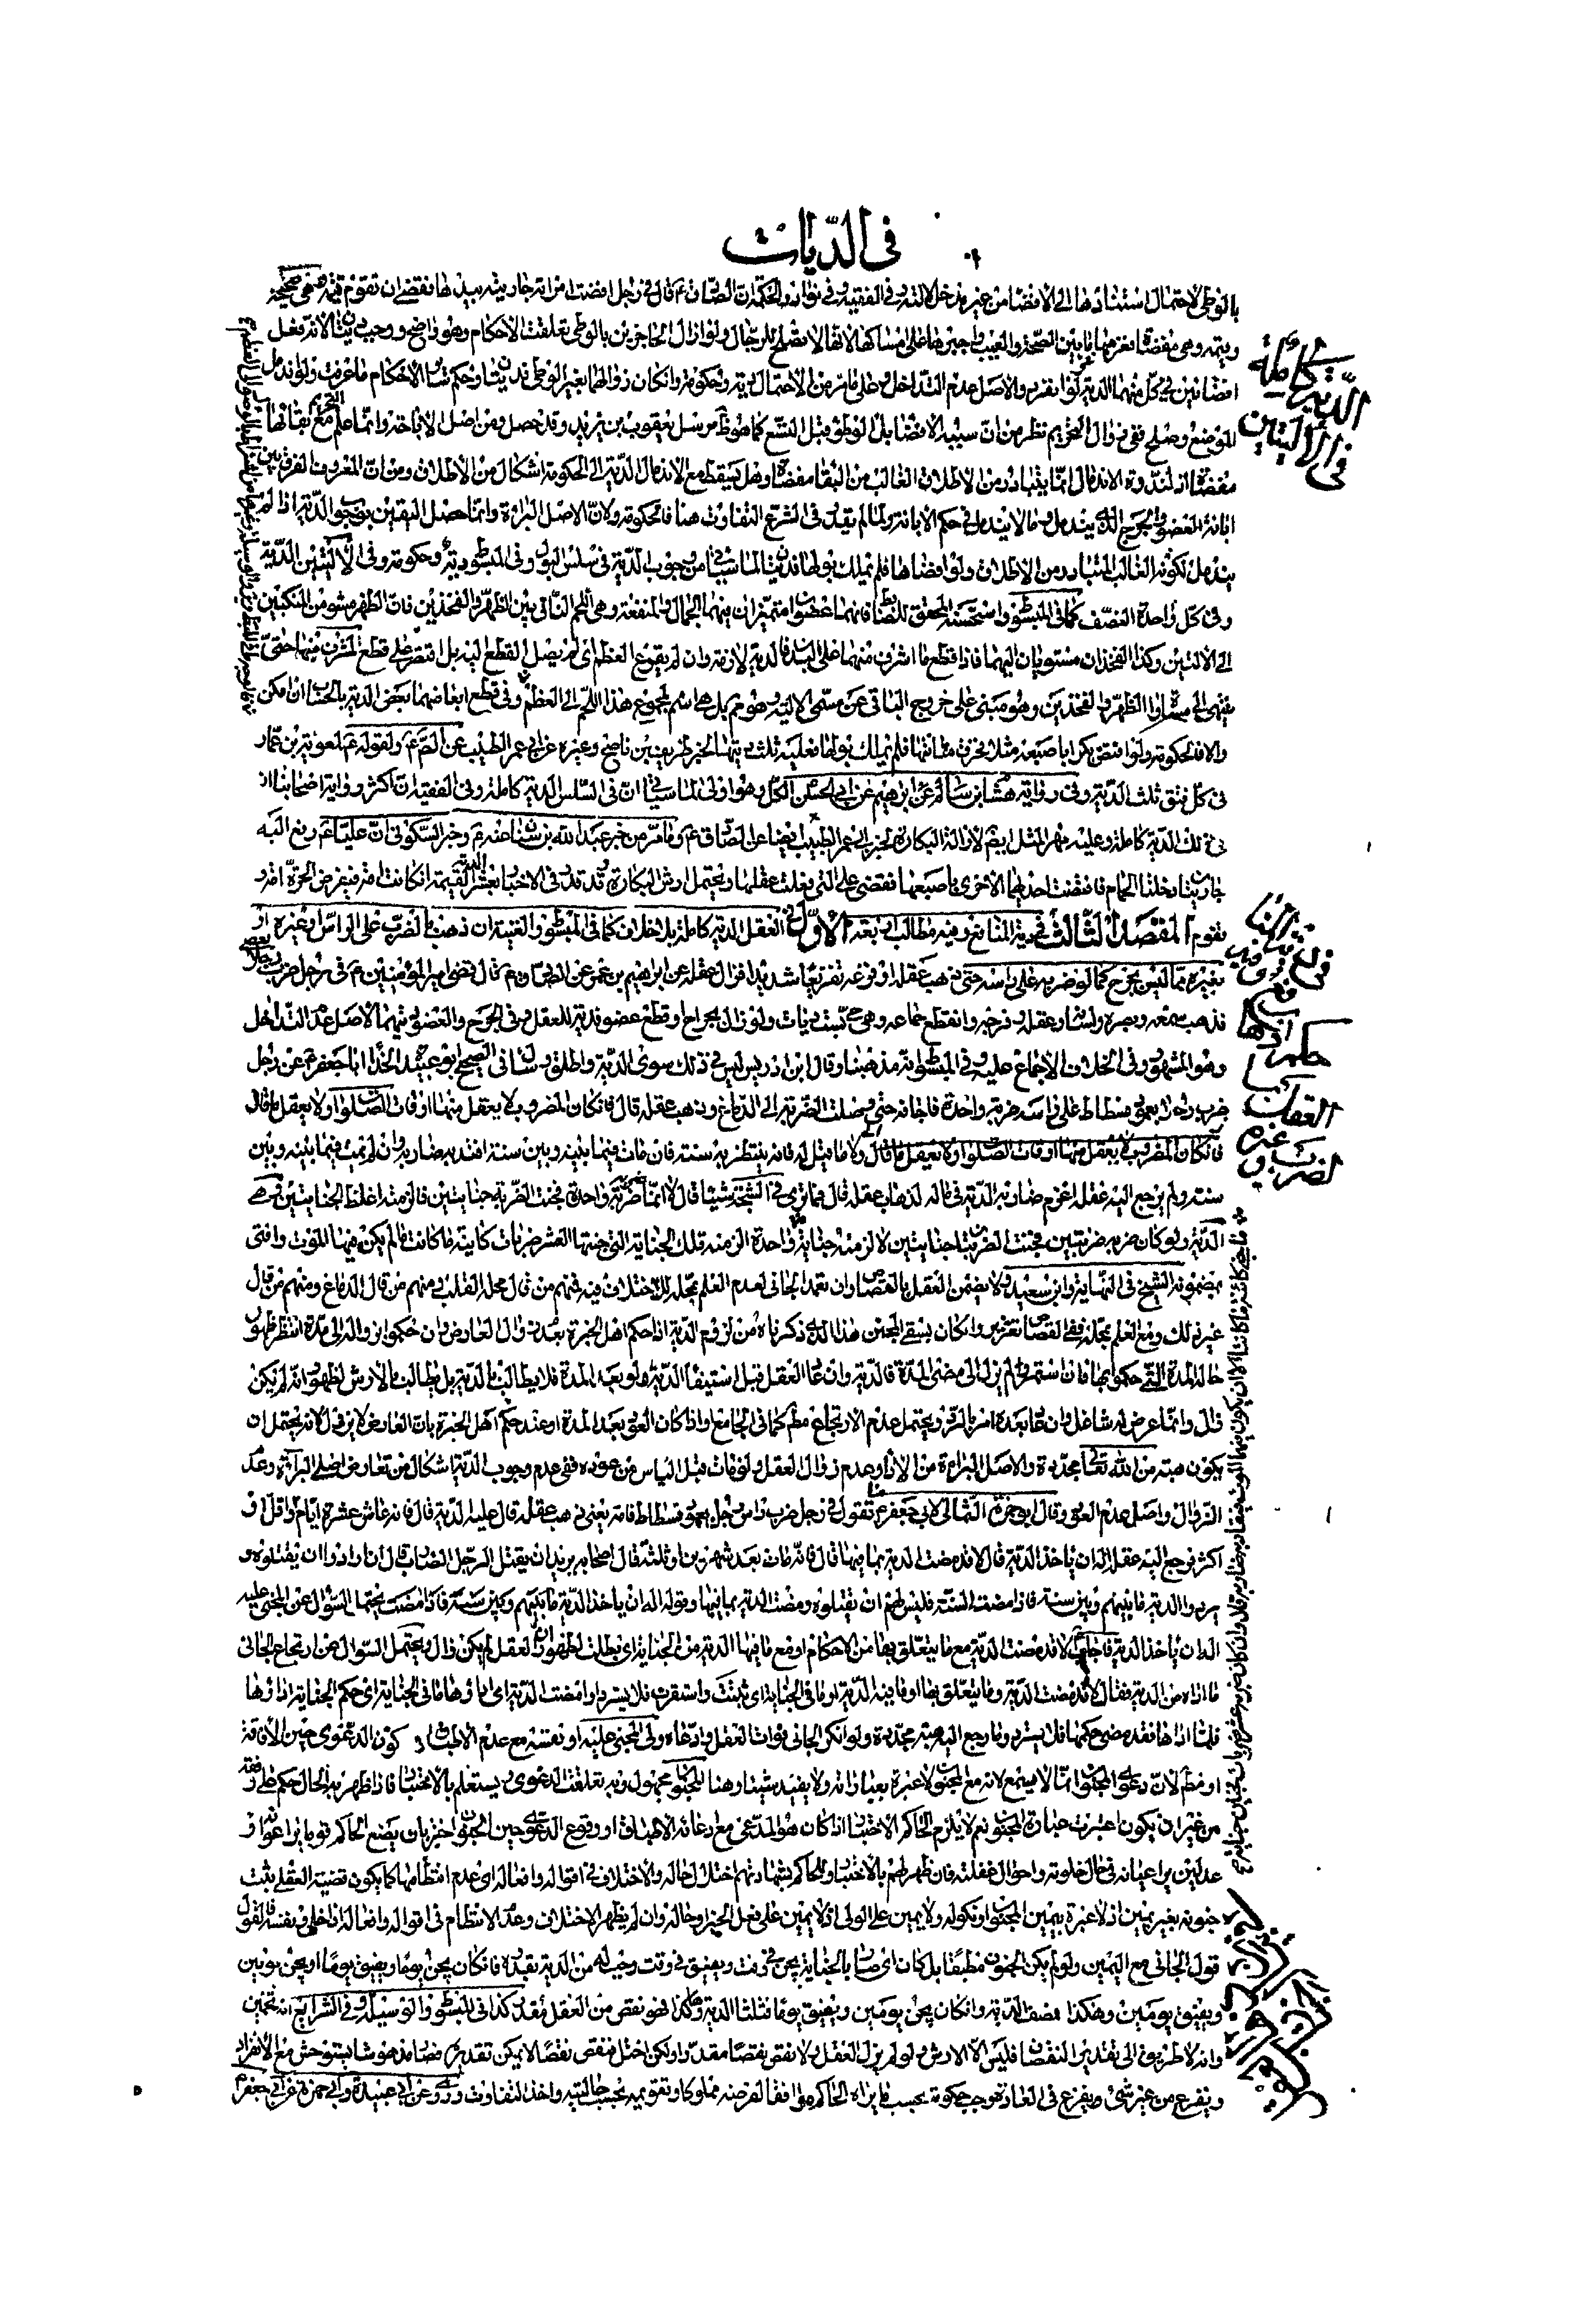 في الديات
بالوطى لاحتمال استنادها الى الافضا من غير مدخل لالته وفي الفقيه وفي نوادر الحكمة ان الصادق ع قال في رجل افضت امراته جاريته بيدها فقضى ان تقوم قيمة وهي صحيحة
وقيمة وهي مفضاة فغرمها ما بين الصحة والعيب واجبرها على امساكها لانها لا تصلح للرجال ولو ازال الحاجزين بالوطى تعلقت الاحكام وهو واضح ووجب ديتان لانه فعل
افضائين في كل منهما الدية لو انفرد والاصل عدم التداخل وعلى ما مر من الاحتمال دية وحكومة وان كان زوالهما بغير الوطى فديتان وحكم ساير الاحكام ما عرفت ولو اندمل
الموضع وصلح ففي زوال التحريم نظر من ان سببه الافضا بل الوطى قبل التسع كما هو ظ مرسل يعقوب بن يزيد وقد حصل ومن اصل الاباحة وانما علم التحريم مع بقائها
مفضاة اذ لندرة الاندمال انما يتبادر من الاطلاق الغالب من البقا مفضاة وهل يسقط مع الاندمال الدية الى الحكومة اشكال من الاطلاق ومن ان المعروف الفرق بين
ابانة العضو والجرح الذي يندمل وما لا يندمل في حكم الابانة ولما لم يقدر في الشرع التفاوت هنا فالحكومة ولان الاصل البراءة وانما حصل اليقين بوجوب الدية اذا لم
يندمل لكونه الغالب المتبادر من الاطلاق ولو افضاها فلم تملك بولها فديتان لما سياتي من وجوب الدية في سلس البول وفي المبسوط دية وحكومة وفي الاليتين الدية
وفي كل واحدة النصف كما في المبسوط واستحسنه المحقق للضابط فانهما عضوان متميزان فيهما الجمال والمنفعة وهي اللحم الناتي بين الظهر والفخذين فان الظهر مستو من المنكبين
الى الاليتين وكذا الفخذان مستويان اليهما فاذا قطع ما اشرف منهما على البدن فالدية لازمة وان لم يقرع العظم اى لم يصل القطع اليه بل اقتصر على قطع المشرف منها حتى
ينتهى الى مساواة الظهر والفخذين وهو مبنى على خروج الباقي عن مسمى الالية وهو م بل هي اسم لمجموع هذا اللحم الى العظم وفي قطع ابعاضهما بعض الدية بالحساب ان امكن
والا فالحكومة ولو افتض بكرا باصبعه مثلا فخرق مثانتها فلم تملك بولها فعليه ثلث ديتها لخبر ظريف بن ناصح وغيره عن ابي عمر الطبيب عن الص ع ولقوله ع لمعوية بن عمار
في كل فتق ثلث الدية وفي رواية هشام بن سالم عن ابرهيم عن ابي الحسن الكل وهو اولى لما سياتي ان في السلس الدية كاملة وفي الفقيه ان اكثر رواية اصحابنا
في ذلك الدية كاملة وعليه مهر المثل ايضا لازالة البكارة لخبر ابي عمر الطبيب ايضا عن الصادق ع وما مر من خبر عبد الله بن سنان عنه ع وخبر السكوني ان عليا ع رفع اليه
جاريتان دخلتا الحمام فافتضت احدهما الاخرى باصبعها فقضى على التي فعلت عقلها ويحتمل ارش البكارة وقد قدر في الاخبار بعشر القيمة ان كانت امة فيفرض الحرة امة و
تقوم المقصد الثالث في دية المنافع وفيه مطالب اربعة الاول في العقل الدية كاملة بلا خلاف كما في المبسوط والغنية ان ذهب بالضرب على الراس او غيره او
بغيره مما ليس بجرح كما لو ضربه على راسه حتى ذهب عقله او فزعه تفزيعا شديدا فزال عقله عن ابرهيم بن عمر عن الصادق ع قال قضى امير المؤمنين ع في رجل ضرب رجلا بعصى
فذهب سمعه وبصره ولسانه وعقله وفرجه وانقطع جماعه وهو حي بست ديات ولو زال بجراح او قطع عضو فدية للعقل وفي الجرح والعضو ديتهما لاصل عدم التداخل
وهو المشهور وفي الخلاف الاجماع عليه وفي المبسوط انه مذهبنا وقال ابن ادريس ليس في ذلك سوى الدية واطلق وسال في الصحيح ابو عبيدة الحذا ابا جعفر ع عن رجل
ضرب رجلا بعمود فسطاط على راسه ضربة واحدة فاجافه حتى وصلت الضربة الى الدماغ وذهب عقله قال فان كان المضروب لا يعقل منها اوقات الصلوة ولا يعقل ما قال
فان كان المضروب لا يعقل منها اوقات الصلوة ولا يعقل ما قال ولا ما قيل له فانه ينتظر به سنة فان مات فيما بينه وبين سنة اقيد به ضاربه وان لم يمت فيما بينه وبين
سنة ولم يرجع اليه عقله اغرم ضاربه الدية في ماله لذهاب عقله قال فما ترى في الشجة شيئا قال لا انما ضربه ضربة واحدة فجنت الضربة جنايتين فالزمته اغلظ الجنايتين وهي
الدية ولو كان ضربه ضربتين فجنت الضربتان جنايتين لالزمته جناية واحدة الزمته تلك الجناية التي جنتها العشر ضربات كاينة ما كانت ما لم يكن فيها الموت وافتى
بمضمونه الشيخ في النهاية وابن سعيد ولا يضمن العقل بالقصاص وان تعمد الجاني لعدم العلم بمحله للاختلاف فيه فمنهم من قال محله القلب ومنهم من قال الدماغ ومنهم من قال
غير ذلك ومع العلم بمحله ففي القصاص تغرير وان كان بسقى المجنن هذا الذي ذكرناه من لزوم الدية اذا حكم اهل الخبرة بعدم زوال العارض وان حكموا بزواله الى مدة انتظر ظهور
حاله المدة التي حكموا بها فان استمر ولم يزل الى مضى المدة فالدية وان عاد العقل قبل استيفا الدية ولو بعد المدة فلا يطالب بالدية بل يطالب بالارش لظهور انه لم يكن
زال وانما عرض له شاغل وان عاد بعده امر بالرد ويحتمل عدم الارتجاع مطم كما في الجامع واذا كان العود بعد المدة او عند حكم اهل الخبرة بان العارض لا يزول لانه يحتمل ان
يكون هبة من الله تعالى مجددة والاصل البراءة من الاداء وعدم زوال العقل ولو مات قبل الياس من عوده ففي عدم وجوب الدية اشكال من تعارض اصلي البراءة وعدم
الزوال واصل عدم العود وقال ابو حمزة الثمالي لابي جعفر ع ما تقول في رجل ضرب راس رجل بعمود فسطاط فامه يعنى ذهب عقله قال عليه الدية قال فانه عاش عشرة ايام او اقل او
اكثر فرجع اليه عقله اله ان ياخذ الدية قال لا قد مضت الدية بما فيها قال فانه مات بعد شهرين او ثلثة قال اصحابه يريد ان يقتل الرجل الضارب قال ان ارادوا ان يقتلوه و
يردوا الدية ما بينهم وبين سنة فاذا مضت السنة فليس لهم ان يقتلوه ومضت الدية بما فيها وقوله اله ان ياخذ الدية ما بينهم وبين سنة فاذا مضت يحتمل السؤال عن المجني عليه
اله ان ياخذ الدية فاجاب لا قد مضت الدية مع ما يتعلق بها من الاحكام او مع ما فيها الدية من الجناية اى بطلت لظهور ان العقل لم يكن زال ويحتمل السؤال عن ارتجاع الجاني
ما اداه من الدية فقال لا قد مضت الدية وما يتعلق بها او ما فيه الدية او ما في الجناية اى ثبتت واستقرت فلا يسترد او امضت الدية اى اداؤها ما في الجناية اى حكم الجناية اذا ادها
فلما اداها فقد مضى حكمها فلا يسترد وما رجع اليه هبة مجددة ولو انكر الجاني فوات العقل وادعاه ولى المجني عليه او نفسه مع عدم الاطباق و كون الدعوى حين الافاقة
او مطم لان دعوى المجنون انما لا يسمع لانه مع الجنون لا عبرة بعباراته ولا يفيد شيئا وهنا الجنون مجهول وبه تعلقت الدعوى ويستعلم بالاختبار فاذا ظهر به الحال حكم على وفقه
من غير ان يكون اعتبرت عبارة المجنون نعم لا يلزم الحاكم الاختبار اذا كان هو المدعى مع ادعائه الاطباق او وقوع الدعوى حين الجنون اختبر بان يضع الحاكم قوما يراعونه او
عدلين يراعيانه في حال خلوته واحوال غفلته فان ظهر لهم بالاختبار وللحاكم بشهادتهم اختلال حاله والاختلاف في اقواله وافعاله اى عدم انتظامها كما يكون قضية العقل ثبت
جنونه بغير يمين اذ لا عبرة بيمين المجنون او نكوله ولا يمين على الولى اذ لا يمين على فعل الغير او حاله وان لم يظهر الاختلاف وعدم الانتظام في اقواله وافعاله اذا خلى ونفسه فالقول
قول الجاني مع اليمين ولو لم يكن الجنون مطبقا بل كان اى صار بالجناية يجن في وقت ويفيق في وقت وجب له من الدية بقدره فان كان يجن يوما ويفيق يوما او يجن يومين
ويفيق يومين وهكذا نصف الدية وان كان يجن يومين ويفيق يوما فثلثا الدية وهكذا فهو نقص من العقل مقدر كذا في المبسوط والوسيلة وفي الشرايع انه تخمين
وانه لا طريق الى تقدير النقصان فليس الا الارش ولو لم يزل العقل ولا نقص نقصا مقدرا ولكن اختل فنقص نقصا لا يمكن تقديره فصار مدهوشا يستوحش مع الانفراد
ويفزع من غير شئ يفزع في العادة وجب حكومة بحسب ما يراه الحاكم موافقا لفرضه مملوكا وتقويمه بحسب حالتيه واخذ التفاوت وروى عن ابي عبيدة وابي حمزة عن ابي جعفر ع
الدية كاملة
في الاليتين